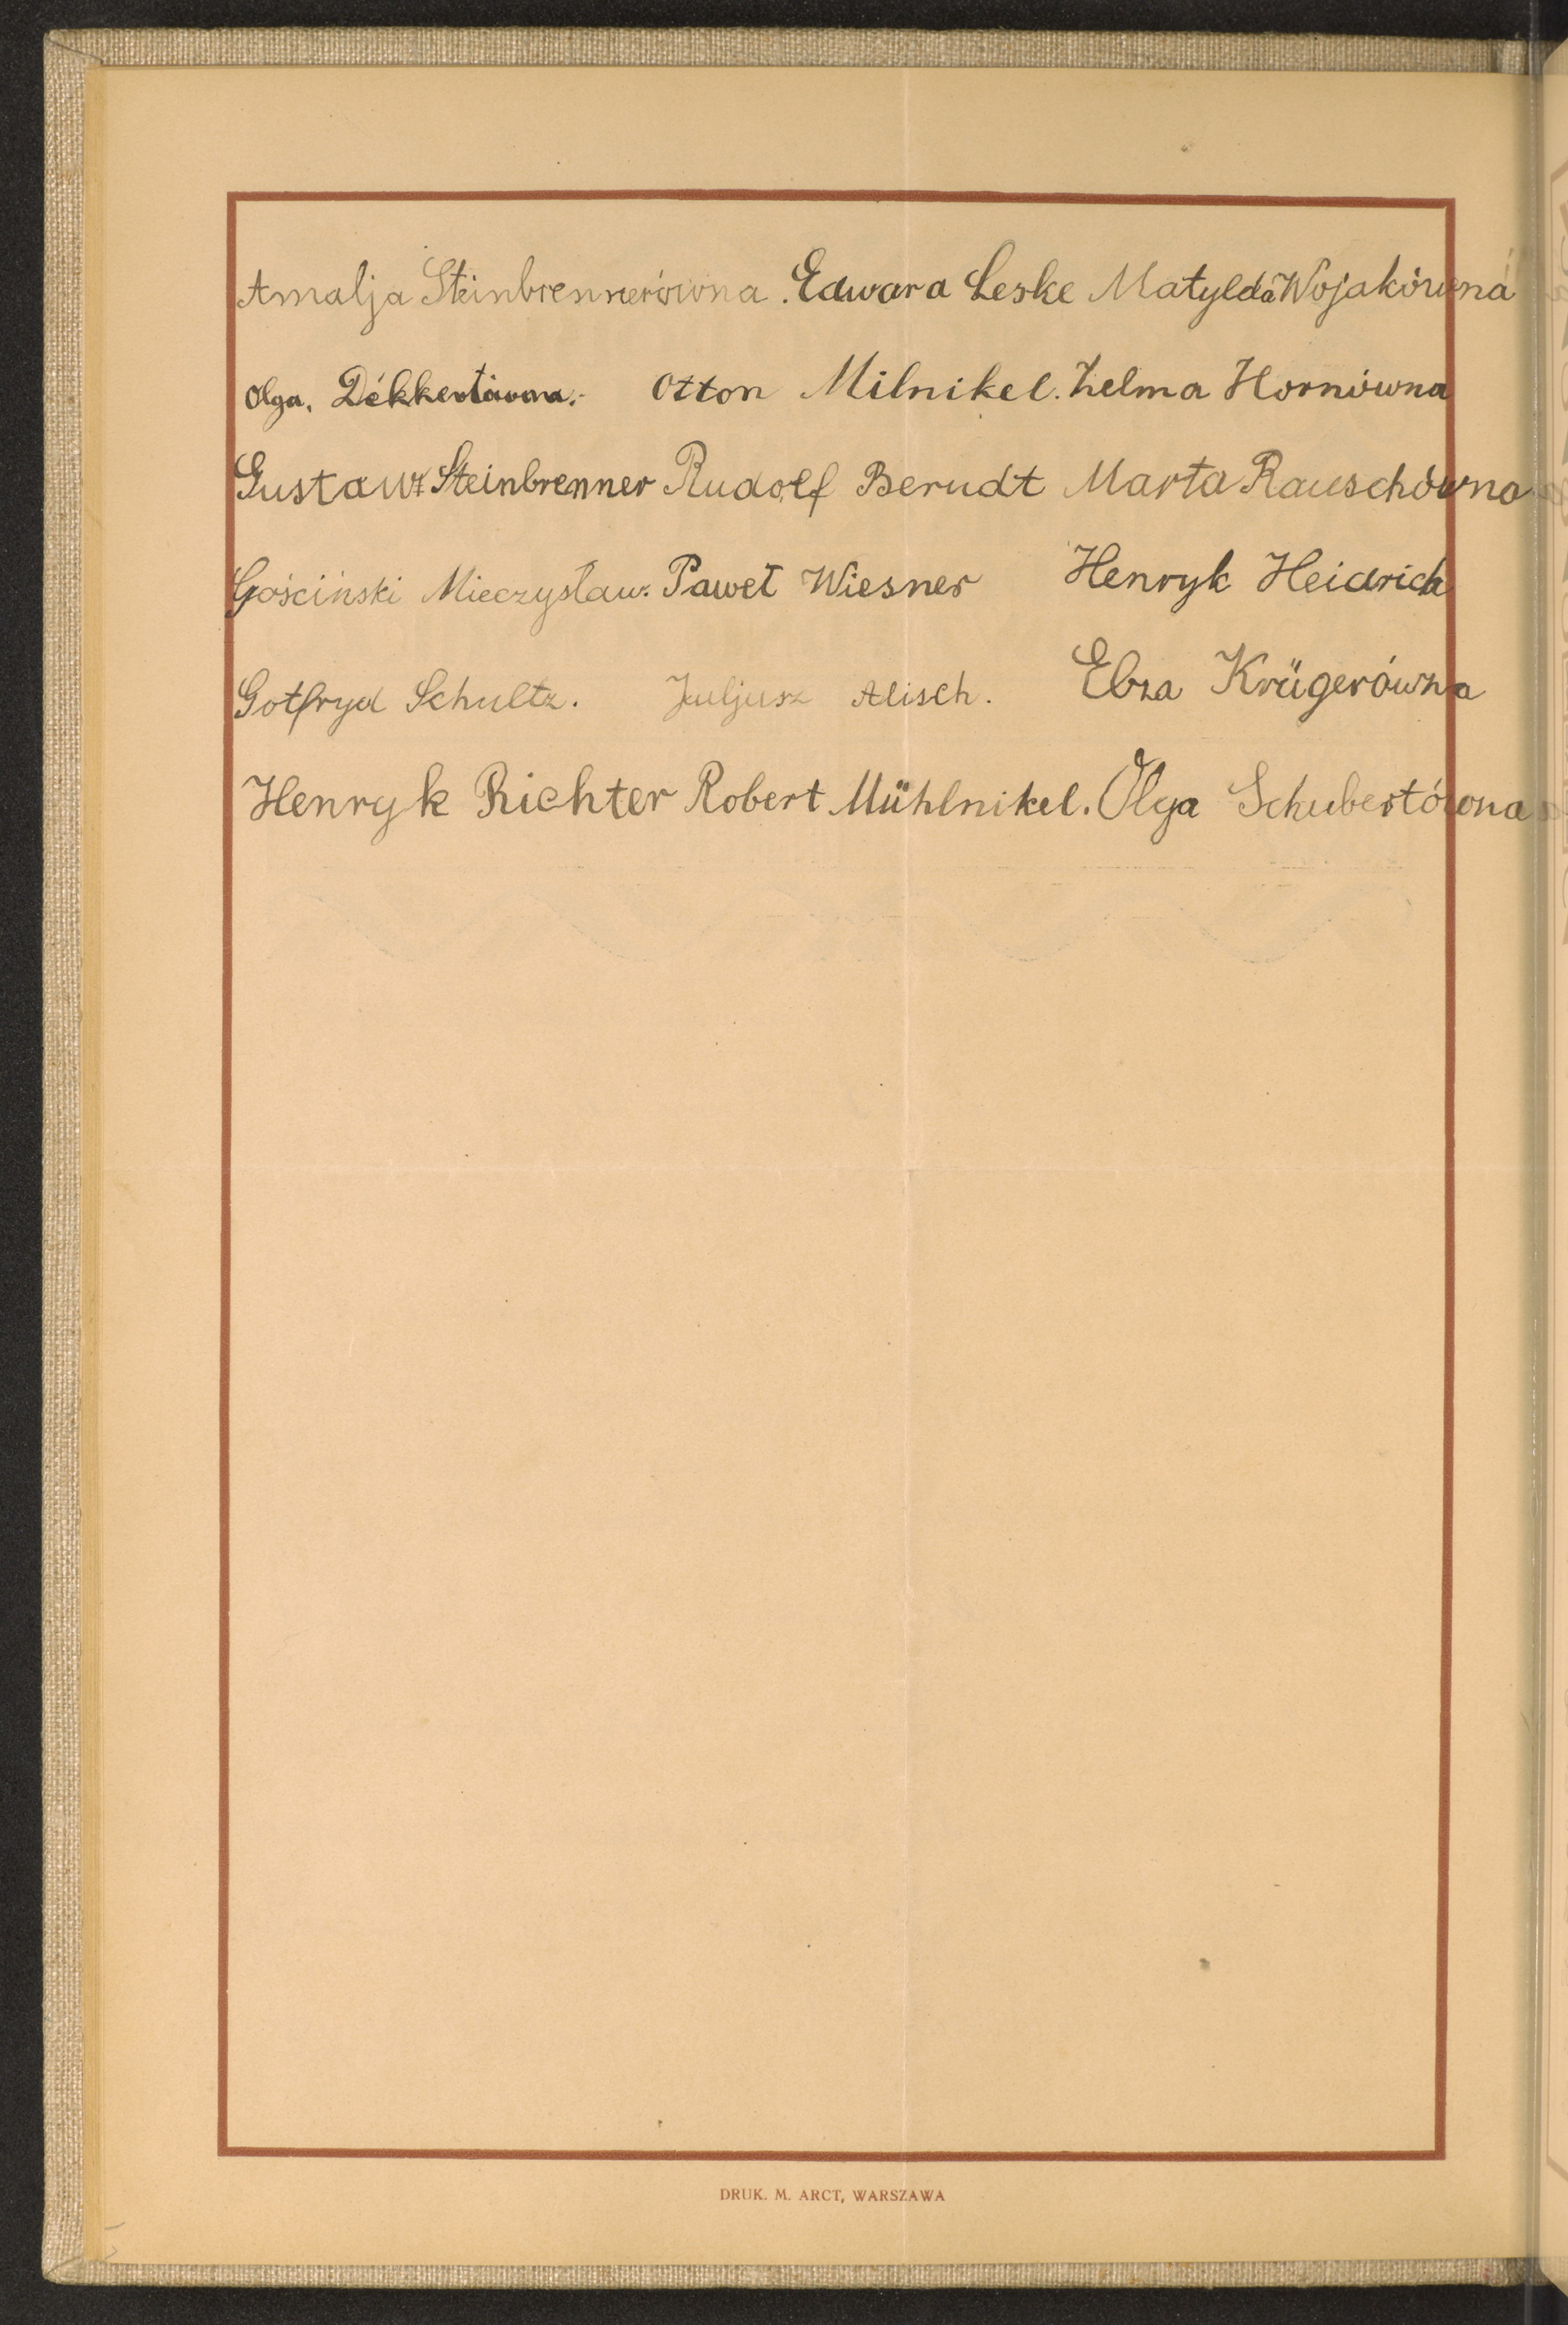 Amalja Steinbrennerówna. Edward Leske Matylda Wojakówna
Olga. Dékkertówna. Otton Milnikel. Zelma Hornówna
Gustaw Steinbrenner Rudolf Berndt Marta Rauschówna
Gościński Mieczysław. Paweł Wiesner Henryk Heidrich
Gotfryd Schultz. Juljusz Alisch. Elza Krügerówna
Henryk Richter Robert Mühlnikel. Olga Schubertówna
DRUK. M. ARCT, WARSZAWA